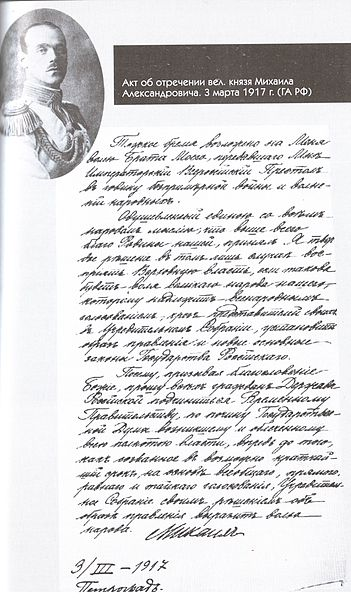 Акт об отречении вел. князя Михаила
Александровича. 3 марта 1917 г. (ГА РФ)
Тяжкое бремя возложено на Меня
волею Брата Моего, передавшего Мне
Императорский Всероссійскій Престол
в годину безпримѣрной войны и волне-
ній народных.
Одушевленный единою со всѣм
народом мыслію, что выше всего
благо Родины нашей, принял Я твер-
дое рѣшеніе в том лишь случаѣ вос-
пріять Верховную власть, если такова
будет воля великаго народа нашего,
которому надлежит всенародным
голосованіем, чрез представителей своих
в Учредительном Собраніи, установить
образ правленія и новые основные
законы Государства Россійскаго.
Посему, призывая благословеніе
Божіе, прошу всѣх граждан Державы
Россійской подчиниться Временному
Правительству, по почину Государствен-
ной Думы возникшему и облеченному
всею полнотою власти, впредь до того,
как созванное в возможно кратчай-
шій срок, на основѣ всеобщаго, прямого,
равнаго и тайнаго голосованія, Учредитель-
ное Собраніе своим рѣшеніем об
образѣ правленія выразит волю
народа.
Михаил
3/III – 1917
Петроград.